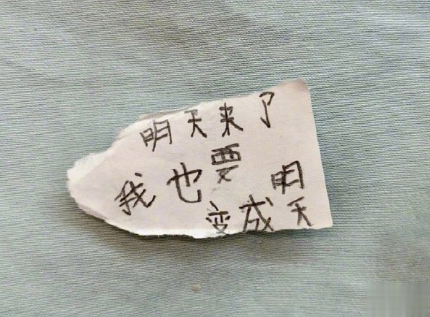 明天来了
我也要
变成明天